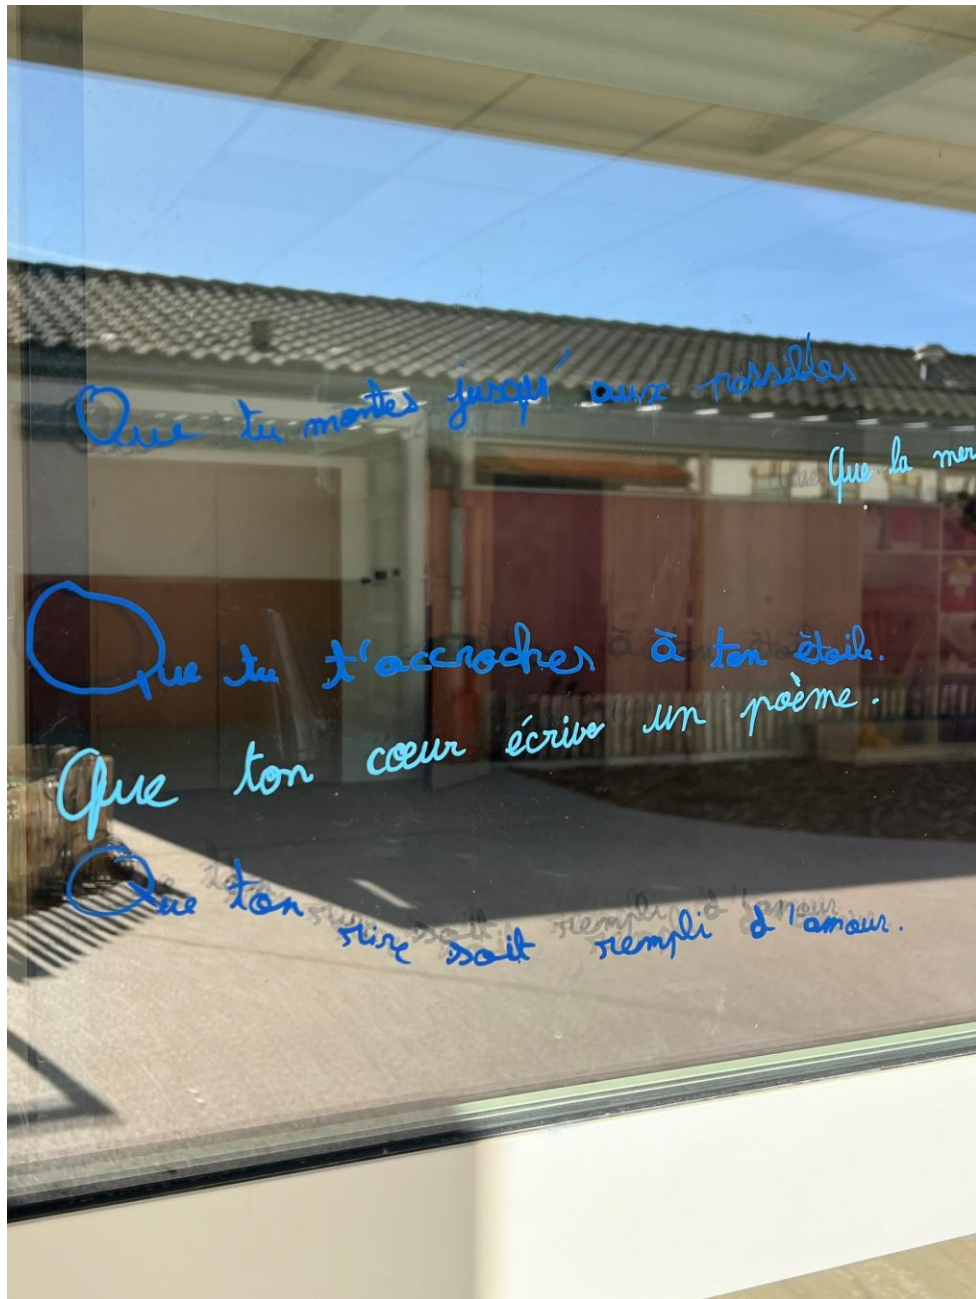 Que tu montes jusqu' aux possibles
Que la mer
Que tu t'accroches à ton étoile.
Que ton cœur écrive un poème.
Que ton rire soit rempli d'amour.